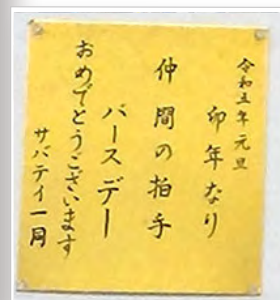 令和五年元旦
卯年なり
仲間の拍手
バースデー
おめでとうございます
サバテイ一同